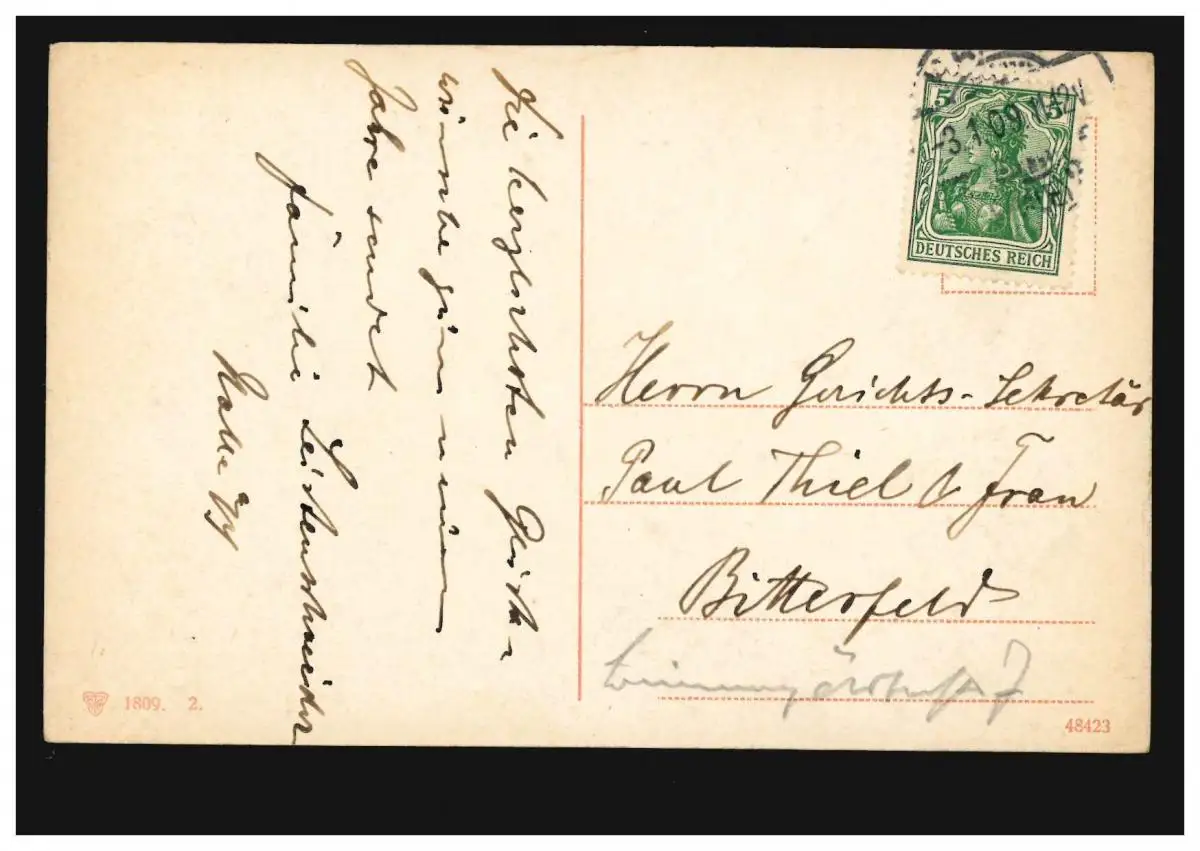 Die herzlichsten Glück-
wünsche zum neuen
Jahre sendet
Familie Leistenschneider
Halle a/S
5 5
-3.1.09 11-12V
DEUTSCHES REICH
Herrn Gerichts-Sekretär
Paul Thiel & Frau
Bitterfeld
7
1809. 2.
48423